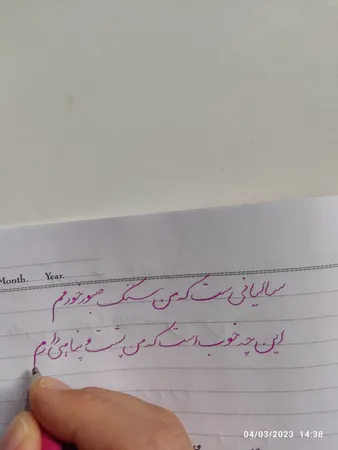 Month. Year.
سالیانی ست که من سنگ صبور خودمم
این چه خوب است که من پشت و پناهی دارم
04/03/2023 14:38